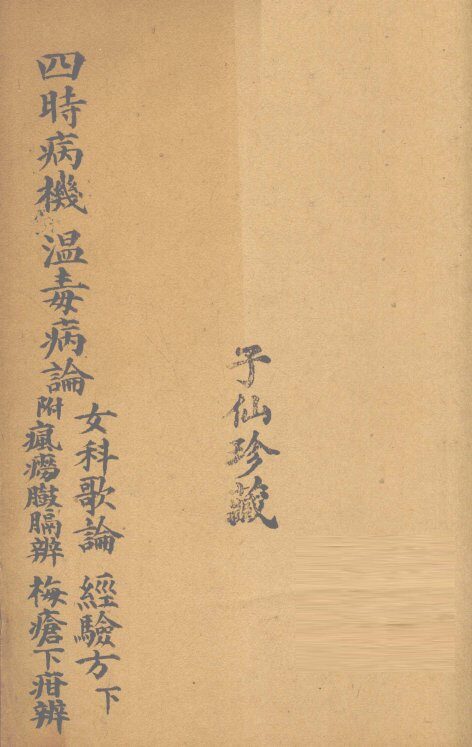 子仙珍藏
四時病機 温毒病論
女科歌論 經驗方下
附瘋癆臌膈辨 梅瘡下疳辨